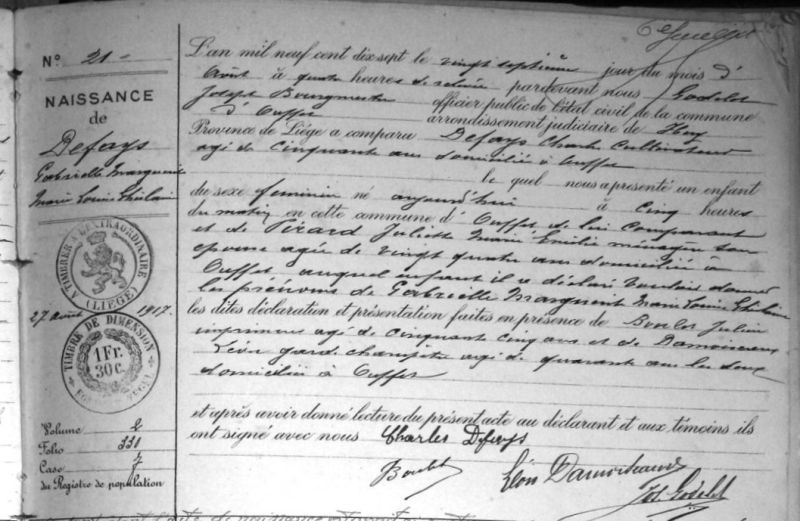 Nº 21
NAISSANCE
de
Defays
Gabrielle Marguerite
Marie Louise Ghislaine
A TIMBRER A L'EXTRAORDINAIRE
(LIÈGE)
27 août 1917.
TIMBRE DE DIMENSION
1 Fr.
30 c.
Volume 2
Folio 331
Case 7
du Registre de population
L'an mil neuf cent dix sept le vingt septième jour du mois d'
Août à quatre heures de relevée pardevant nous Godelet
Joseph Bourgmestre officier public de l'état civil de la commune
d'Ouffet arrondissement judiciaire de Huy
Province de Liège a comparu Defays Charles Cultivateur
agé de cinquante ans domicilié à Ouffet
le quel nous a présenté un enfant
du sexe féminin né aujourd'hui à cinq heures
du matin en cette commune d'Ouffet de lui comparant
et de Pirard Juliette Marie Emilie ménagère son
épouse agée de vingt quatre ans domiciliée à
Ouffet auquel enfant il a déclaré vouloir donner
les prénoms de Gabrielle Marguerite Marie Louise Ghislaine
les dites déclaration et présentation faites en présence de Boulot Julien
imprimeur agé de cinquante cinq ans et de Damoiseaux
Léon garde champêtre agé de quarante ans les deux
domiciliés à Ouffet
et après avoir donné lecture du présent acte au déclarant et aux témoins ils
ont signé avec nous Charles Defays
Léon Damoiseaux
Jos. Godelet